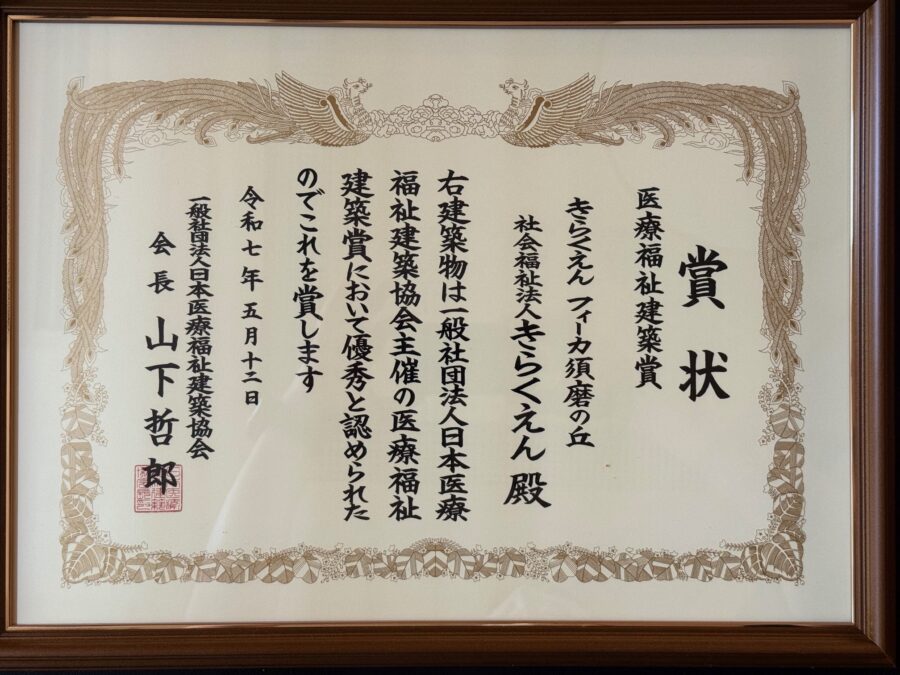 賞状
医療福祉建築賞
きらくえん フィーカ須磨の丘
社会福祉法人きらくえん 殿
右建築物は一般社団法人日本医療
福祉建築協会主催の医療福祉
建築賞において優秀と認められた
のでこれを賞します
令和七年五月十二日
一般社団法人日本医療福祉建築協会
会長 山下哲郎